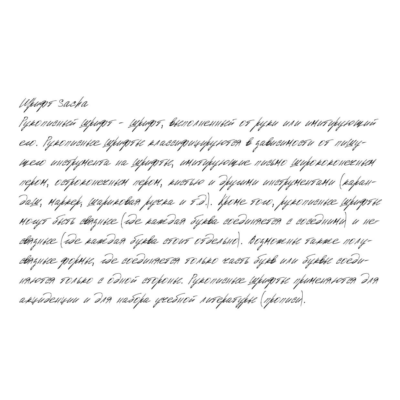 Шрифт Заска
Рукописный шрифт – шрифт, выполненный от руки или имитирующий
его. Рукописные шрифты классифицируются в зависимости от пишу-
щего инструмента на шрифты, имитирующие письмо ширококонечным
пером, остроконечным пером, кистью и другими инструментами (каран-
даш, маркер, шариковая ручка и т.д.). Кроме того, рукописные шрифты
могут быть связные (где каждая буква соединяется с соседними) и не-
связные (где каждая буква стоит отдельно). Возможные также полу-
связные формы, где соединяется только часть букв или буквы соеди-
няются только с одной стороны. Рукописные шрифты применяются для
акциденции и для набора учебной литературы (прописи).